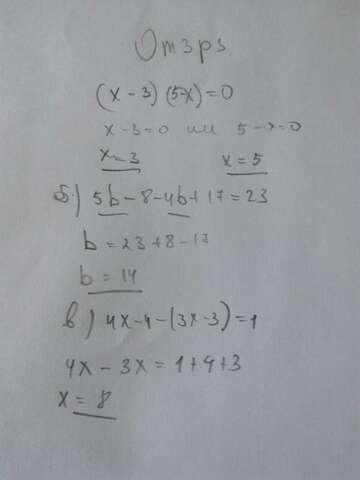 Отзрз
(x - 3) (5-x)=0
x-3=0 или 5-x=0
x=3 x=5
б.) 5b-8-4b+17=23
b=23+8-17
b=14
в) 4x-4-(3x-3)=1
4x-3x=1+4+3
x=8